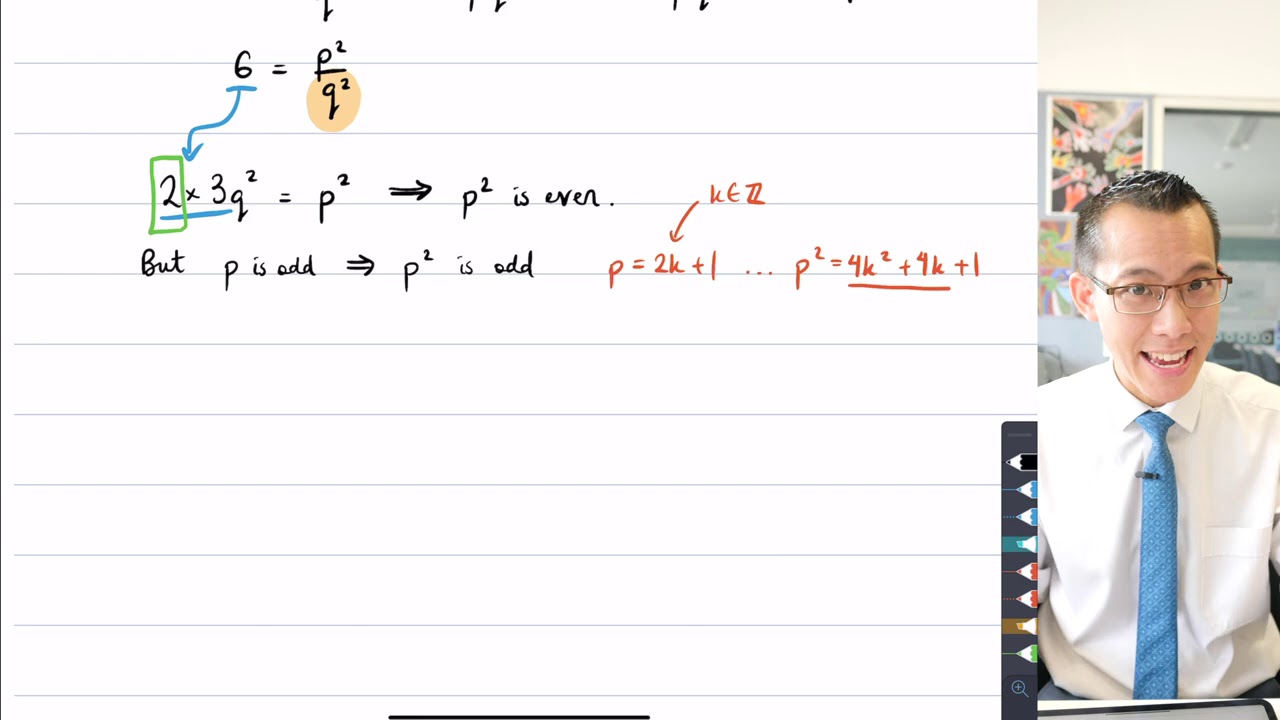 6 = p²/q²
2 × 3q² = p² ⟹ p² is even.
k∈ℤ
But p is odd ⇒ p² is odd
p = 2k + 1 ... p² = 4k² + 4k + 1